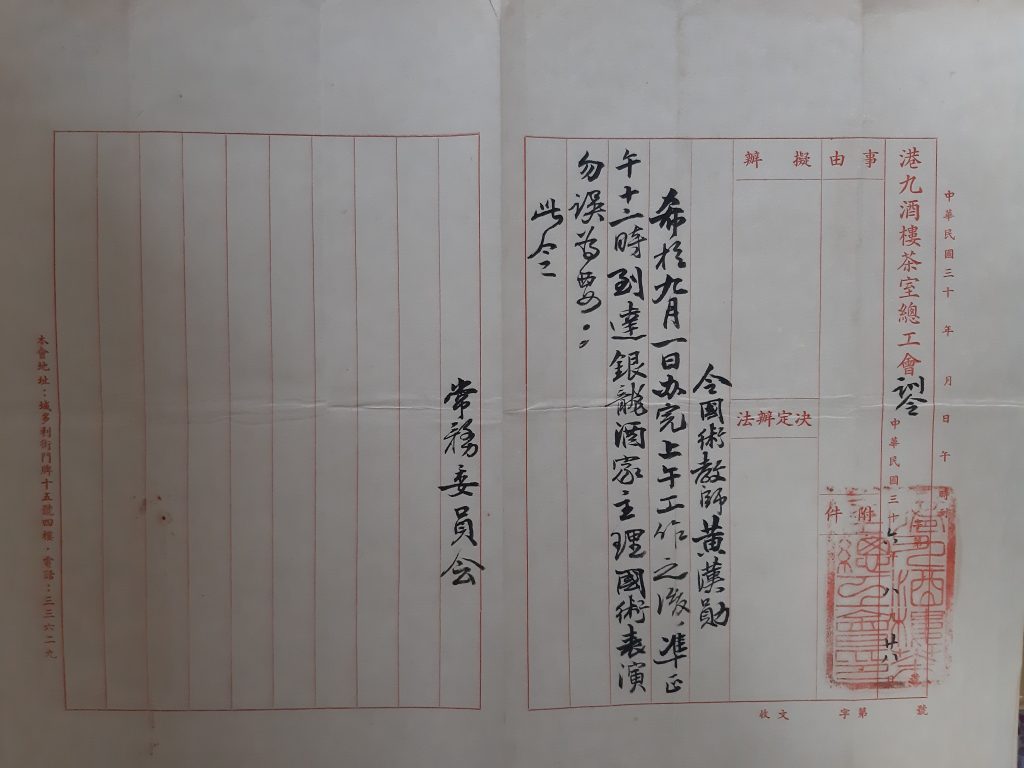 中華民國三十 年 月 日 午 時
港九酒樓茶室總工會訓令
中華民國三十六 八 廿八日
事由
附件
擬辦
決定辦法
令國術教師黃漢勛
希於九月一日办完上午工作之後，準正
午十二時到達銀龍酒家主理國術表演
勿誤為要。
此令
常務委員会
本會地址：域多利街門牌十五號四樓．電話：三三六二九
收文 字第 號